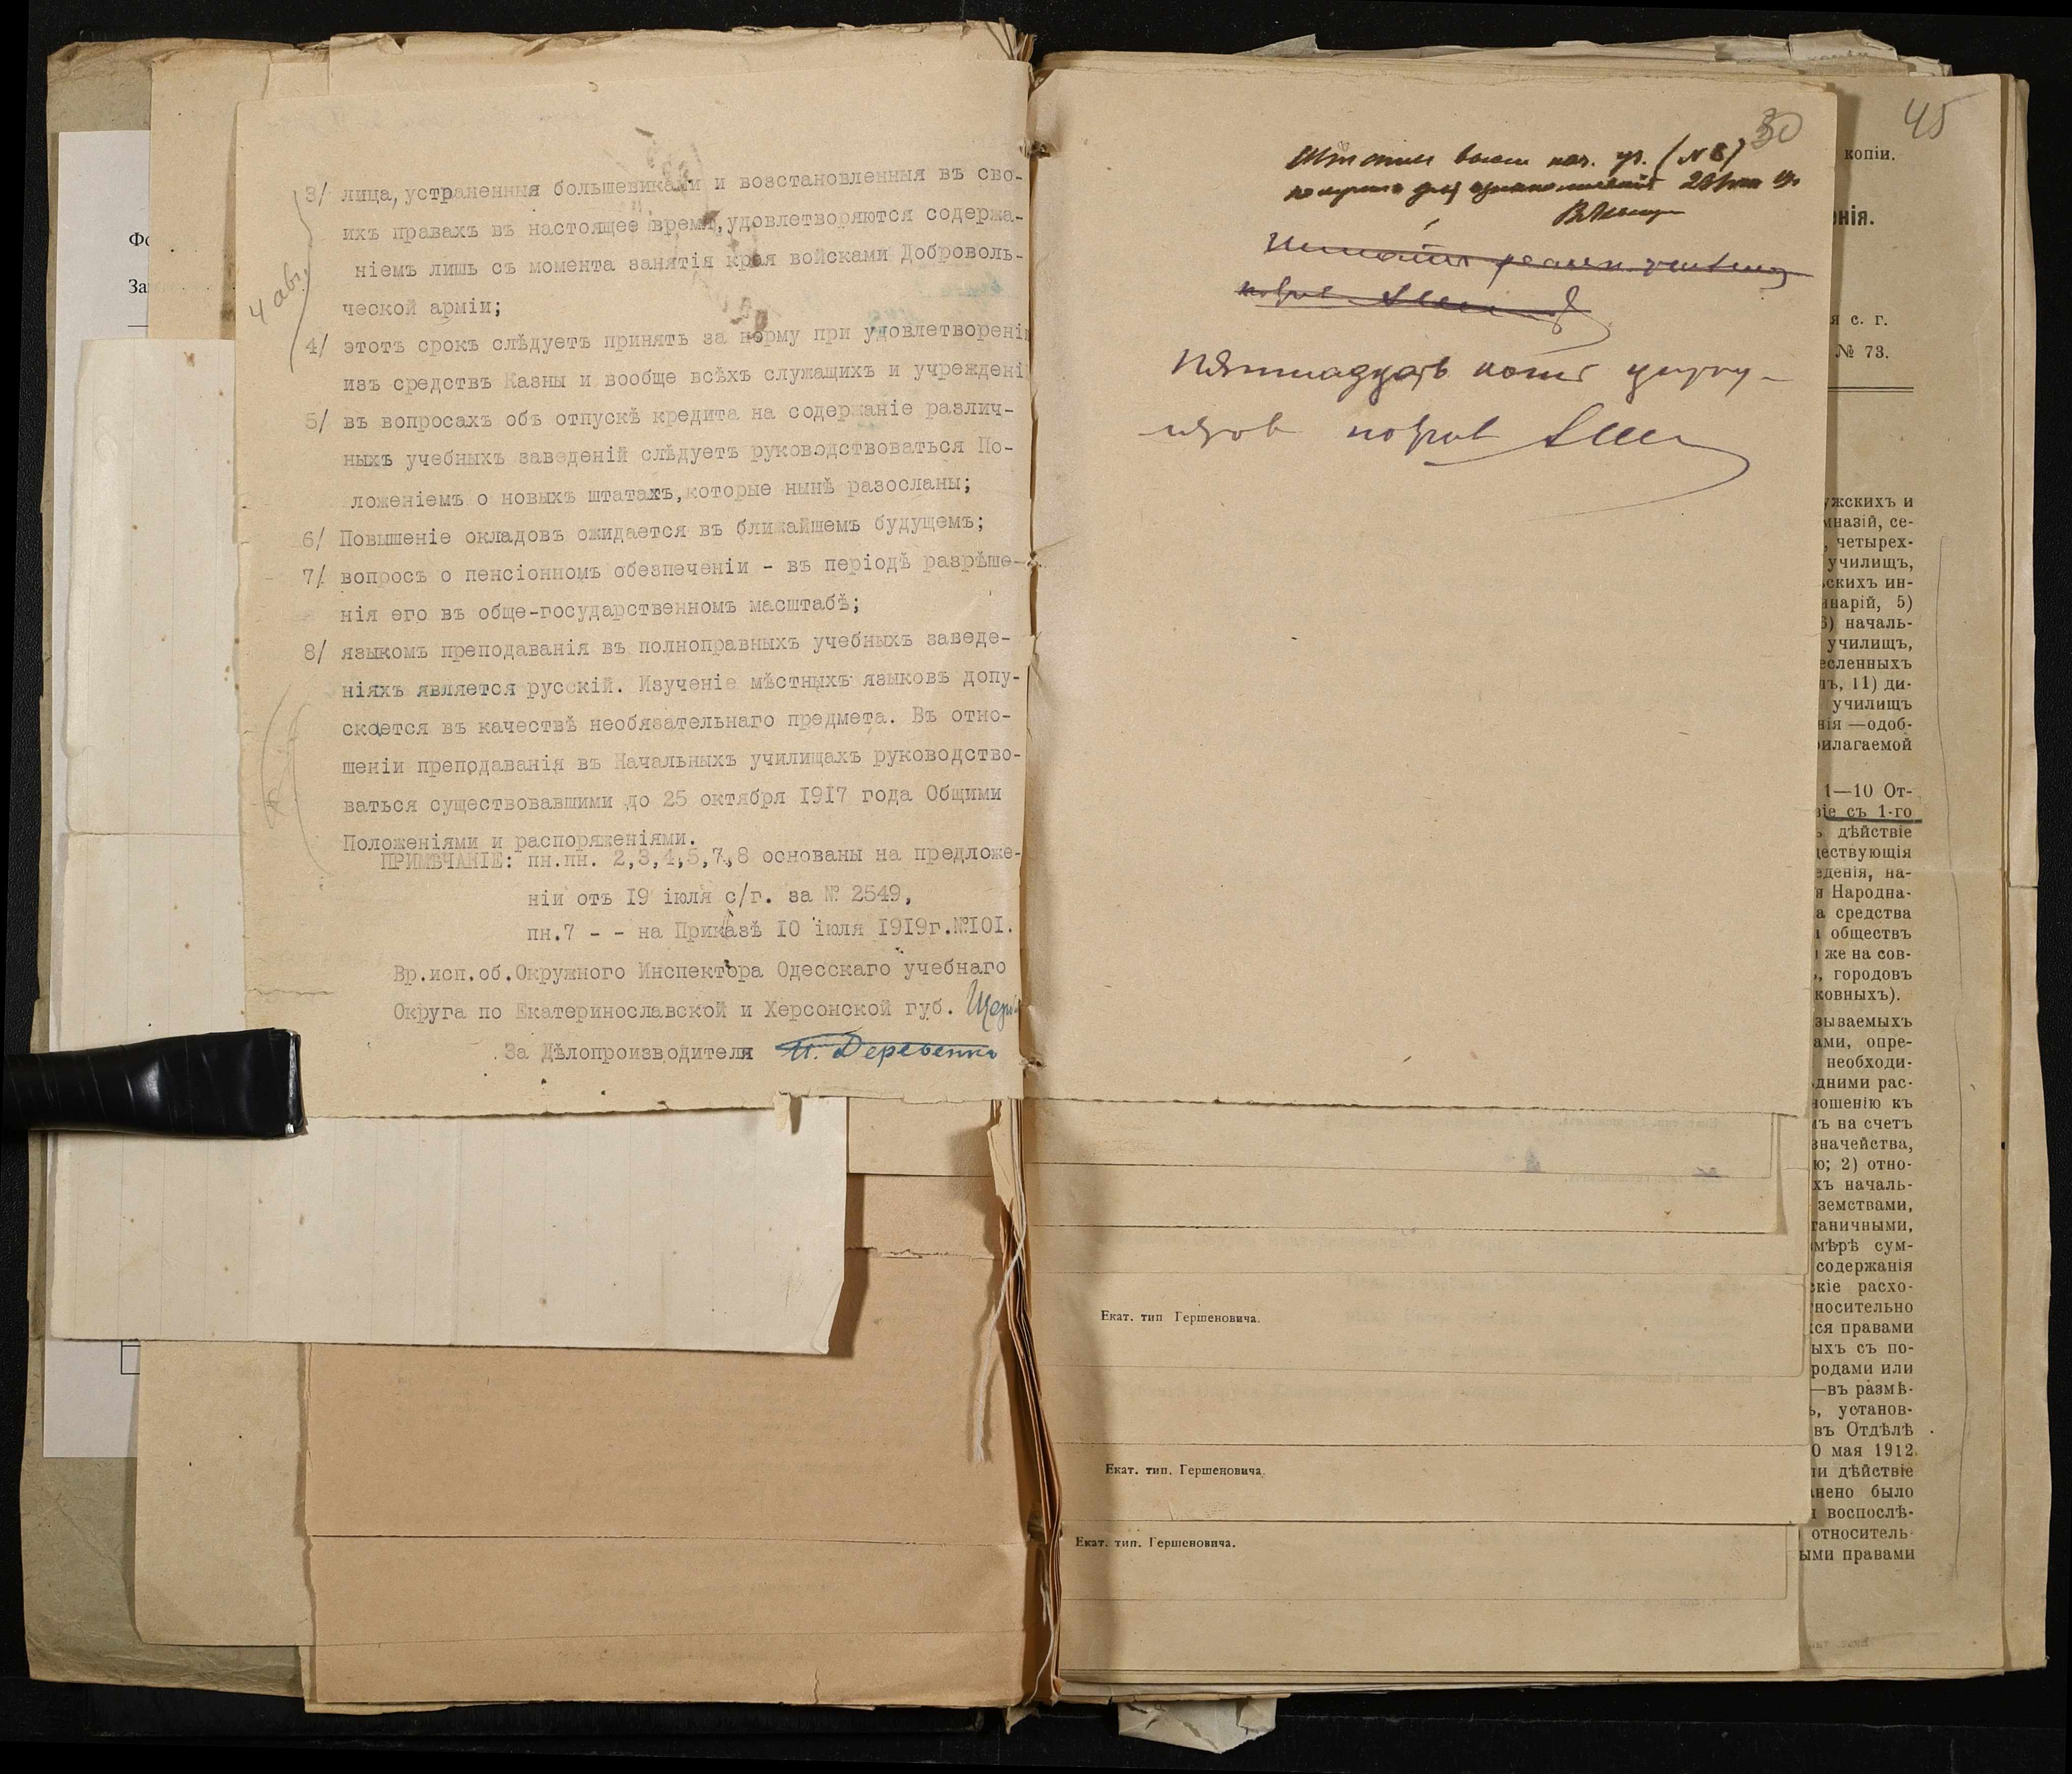 3/ лица, устраненныя большевиками и возстановленныя въ сво-
ихъ правахъ въ настоящее время, удовлетворяются содержа-
ніемъ лишь съ момента занятія края войсками Доброволь-
ческой арміи;
4 авг.
4/ этотъ срокъ слѣдуетъ принять за норму при удовлетвореніи
изъ средствъ Казны и вообще всѣхъ служащихъ и учрежденi
5/ въ вопросахъ объ отпускѣ кредита на содержаніе различ-
ныхъ учебныхъ заведеній слѣдуетъ руководствоваться По-
ложеніемъ о новыхъ штатахъ, которые нынѣ разосланы;
6/ Повышеніе окладовъ ожидается въ ближайшемъ будущемъ;
7/ вопросъ о пенсіонномъ обезпеченіи - въ періодѣ разрѣше-
нія его въ обще-государственномъ масштабѣ;
8/ языкомъ преподаванія въ полноправныхъ учебныхъ заведе-
ніяхъ является русскій. Изученіе мѣстныхъ языковъ допу-
скается въ качествѣ необязательнаго предмета. Въ отно-
шеніи преподаванія въ Начальныхъ училищахъ руководство-
ваться существовавшими до 25 октября 1917 года Общими
Положеніями и распоряженіями.
ПРИМѢЧАНІЕ: пн.пн. 2,3,4,5,7,8 основаны на предложе-
ніи отъ 19 іюля с/г. за № 2549,
пн.7 - - на Приказѣ 10 іюля 1919г.№101.
Вр.исп.об.Окружного Инспектора Одесскаго учебнаго
Округа по Екатеринославской и Херсонской губ.
За Дѣлопроизводителя И. Деревенко
30
(№ 8)
Пятнадцать копій цирку-
ляров
Екат. тип Гершеновича.
Екат. тип. Гершеновича.
Екат. тип. Гершеновича.
45
копіи.
нія.
я с. г.
№ 73.
ужскихъ и
мназій, се-
, четырех-
училищъ,
ьскихъ ин-
нарій, 5)
6) началь-
училищъ,
есленныхъ
лъ, 11) ди-
училищъ
нія —одоб-
рилагаемой
1—10 От-
віе съ 1-го
ъ дѣйствіе
дествующія
еденія, на-
я Народна-
а средства
и обществъ
же на сов-
ь, городовъ
ковныхъ).
зываемыхъ
ами, опре-
необходи-
дними рас-
ношенію къ
лъ на счетъ
значейства,
ю; 2) отно-
хъ началь-
земствами,
ганичными,
мѣрѣ сум-
содержанія
скіе расхо-
тносительно
хся правами
ыхъ съ по-
родами или
—въ размѣ-
ь, установ-
въ Отдѣлѣ
0 мая 1912
ли дѣйствіе
анено было
и воспослѣ-
относитель-
ыми правами